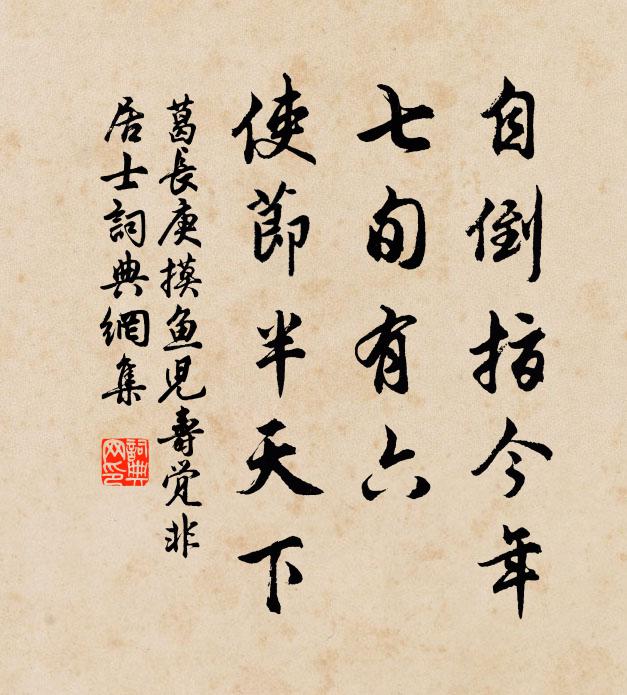 自倒指今年
七旬有六
使節半天下
葛長庚摸鱼児壽覚非
居士詞典網集
詞典网印